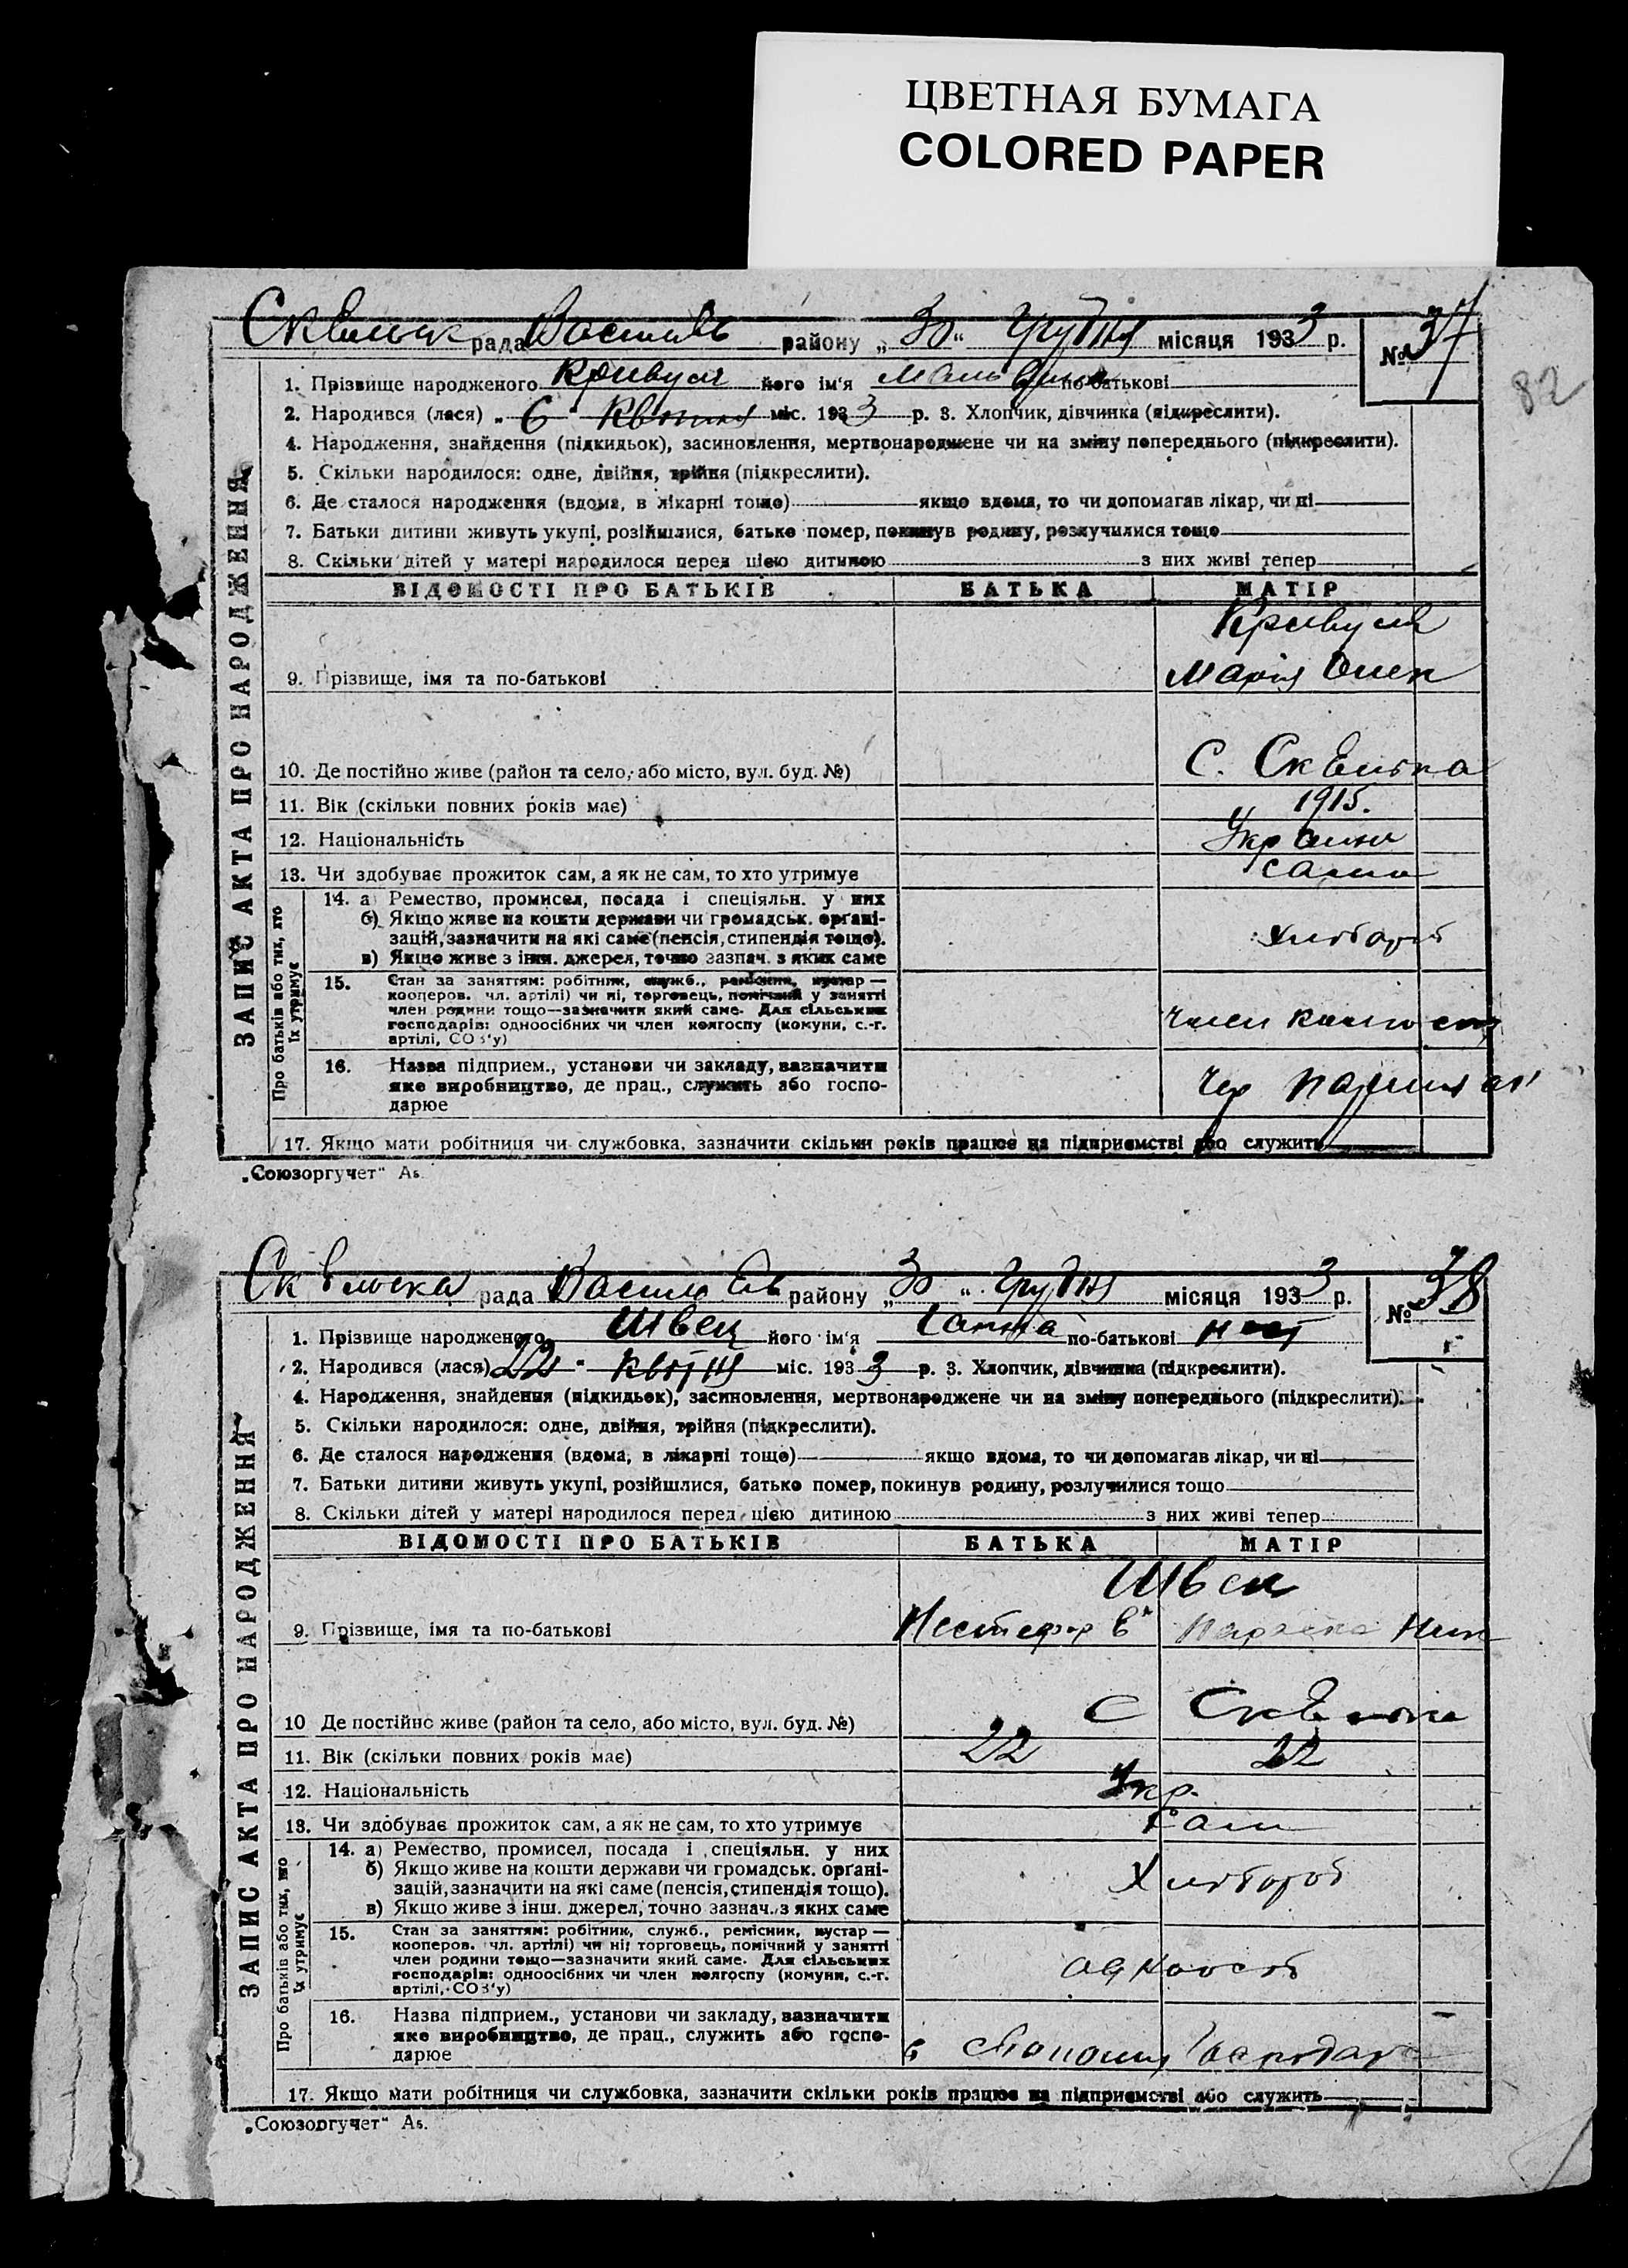 ЦВЕТНАЯ БУМАГА
COLORED PAPER
82
рада району „30“ Грудня місяця 1933 р. № 37
ЗАПИС АКТА ПРО НАРОДЖЕННЯ
1. Прізвище народженого його ім'я по-батькові
2. Народився (лася) „6“ Квітня міс. 1933 р. 3. Хлопчик, дівчинка (підкреслити).
4. Народження, знайдення (підкидьок), засиновлення, мертвонароджене чи на зміну попереднього (підкреслити).
5. Скільки народилося: одне, двійня, трійня (підкреслити).
6. Де сталося народження (вдома, в лікарні тощо) якщо вдома, то чи допомагав лікар, чи ні
7. Батьки дитини живуть укупі, розійшлися, батько помер, покинув родину, розлучилися тощо
8. Скільки дітей у матері народилося перед цією дитиною з них живі тепер
ВІДОМОСТІ ПРО БАТЬКІВ БАТЬКА МАТІР
9. Прізвище, імя та по-батькові
Марія Олек
10. Де постійно живе (район та село, або місто, вул. буд. №) С.
11. Вік (скільки повних років має) 1915.
12. Національність
13. Чи здобуває прожиток сам, а як не сам, то хто утримує сама
Про батьків або тих, хто їх утримує
14. а) Ремество, промисел, посада і спеціяльн. у них
б) Якщо живе на кошти держави чи громадськ. орґані-
зацій, зазначити на які саме (пенсія, стипендія тощо). хлібороб
в) Якщо живе з інш. джерел, точно зазнач. з яких саме
15. Стан за заняттям: робітник, служб., ремісник, кустар —
кооперов. чл. артілі) чи ні, торговець, помічний у занятті
член родини тощо—зазначити який саме. Для сільських
господарів: одноосібних чи член колгоспу (комуни, с.-г.
артілі, СОЗ'у)
член колгоспу
16. Назва підприєм., установи чи закладу, вазначити
яке виробництво, де прац., служить або госпо-
дарюе
17. Якщо мати робітниця чи службовка, зазначити скільки років працює на підприємстві або служить
„Союзоргучет“ А5.
рада району „30“ Грудня місяця 1933 р. № 38
ЗАПИС АКТА ПРО НАРОДЖЕННЯ
1. Прізвище народженого Швец його ім'я Ганна по-батькові Нест
2. Народився (лася) 22 Квітня міс. 1933 р. 3. Хлопчик, дівчинка (підкреслити).
4. Народження, знайдення (підкидьок), засиновлення, мертвонароджене чи на зміну попереднього (підкреслити).
5. Скільки народилося: одне, двійня, трійня (підкреслити).
6. Де сталося народження (вдома, в лікарні тощо) якщо вдома, то чи допомагав лікар, чи ні
7. Батьки дитини живуть укупі, розійшлися, батько помер, покинув родину, розлучилися тощо
8. Скільки дітей у матері народилося перед цією дитиною з них живі тепер
ВІДОМОСТІ ПРО БАТЬКІВ БАТЬКА МАТІР
Швец
9. Прізвище, імя та по-батькові Нестер
10 Де постійно живе (район та село, або місто, вул. буд. №) С
11. Вік (скільки повних років має) 22 22
12. Національність Укр.
13. Чи здобуває прожиток сам, а як не сам, то хто утримує Сам
Про батьків або тих, хто їх утримує
14. а) Ремество, промисел, посада і спеціяльн. у них
б) Якщо живе на кошти держави чи громадськ. орґані- Хлібороб
зацій, зазначити на які саме (пенсія, стипендія тощо).
в) Якщо живе з інш. джерел, точно зазнач. з яких саме
15. Стан за заняттям: робітник, служб., ремісник, кустар —
кооперов. чл. артілі) чи ні, торговець, помічний у занятті
член родини тощо—зазначити який саме. Для сільських
господарів: одноосібних чи член колгоспу (комуни, с.-г.
артілі, СОЗ'у)
одноосіб
16. Назва підприєм., установи чи закладу, вазначити
яке виробництво, де прац., служить або госпо-
дарюе
17. Якщо мати робітниця чи службовка, зазначити скільки років працює на підприємстві або служить
„Союзоргучет“ А5.